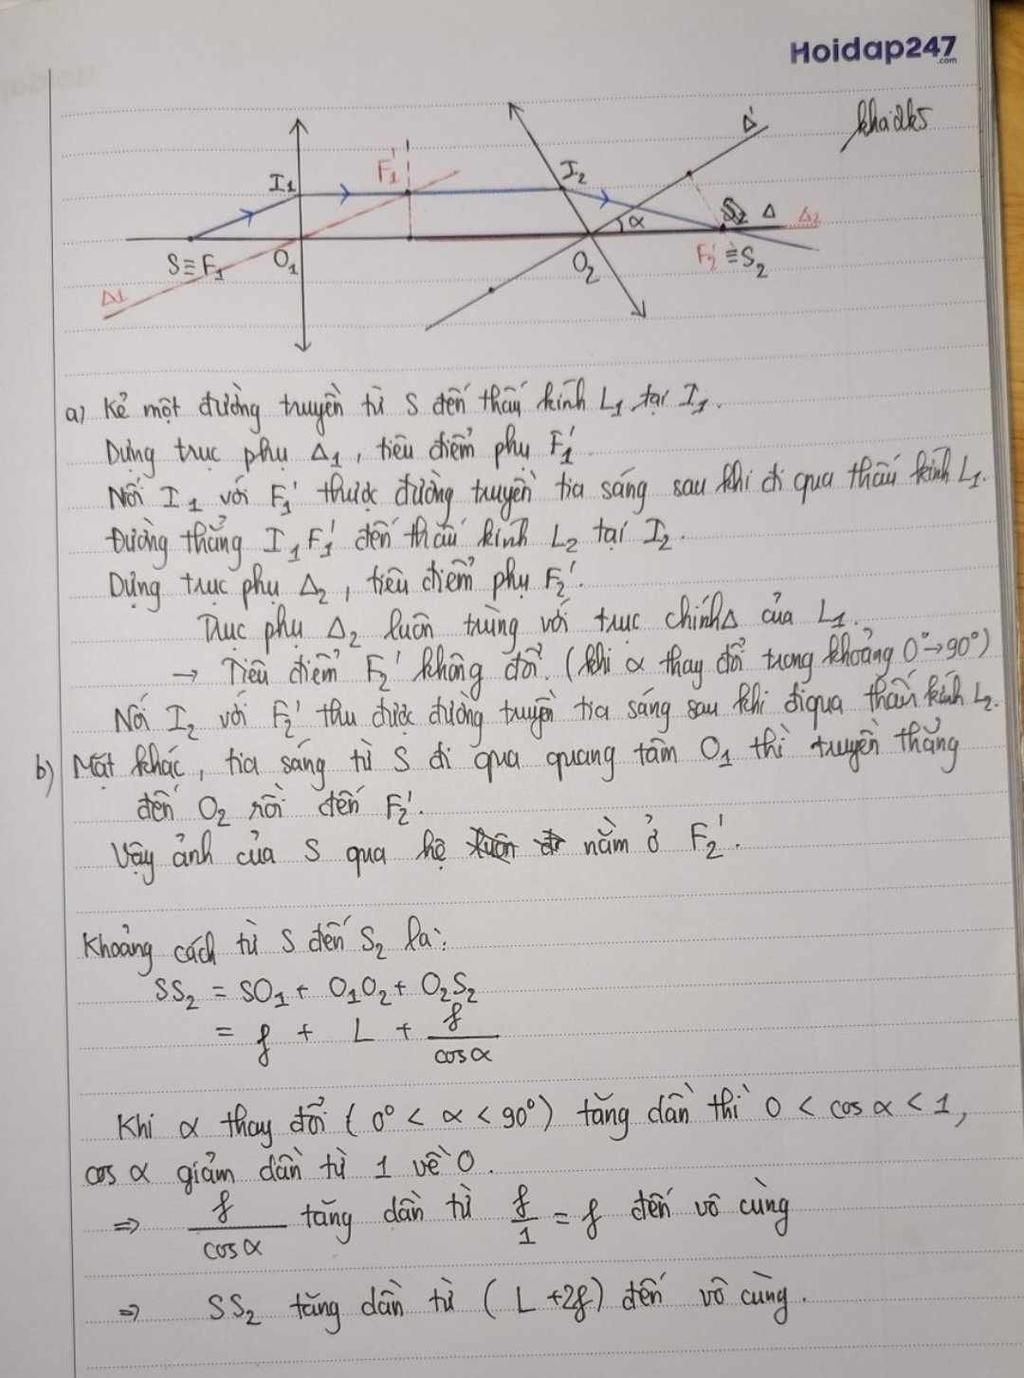 Hoidap247
.com
khaidk5
I1 F1' I2 Δ' α S2 Δ Δ2
S≡F1 O1 O2 F2' ≡S2
Δ1
a) Kẻ một đường truyền từ S đến thấu kính L1 tại I1.
Dựng trục phụ Δ1, tiêu điểm phụ F1'
Nối I1 với F1' thược đường truyền tia sáng sau khi đi qua thấu kính L1.
Đường thẳng I1F1' đến thấu kính L2 tại I2.
Dựng trục phụ Δ2, tiêu điểm phụ F2'.
Trục phụ Δ2 luôn trùng với trục chính Δ của L1.
→ Tiêu điểm F2' không đổi. (khi α thay đổi trong khoảng 0°→90°)
Nối I2 với F2' thu được đường truyền tia sáng sau khi đi qua thấu kính L2.
b) Mặt khác, tia sáng từ S đi qua quang tâm O1 thì truyền thẳng
đến O2 rồi đến F2'.
Vậy ảnh của S qua hệ luôn nằm ở F2'.
Khoảng cách từ S đến S2 là:
SS2 = SO1 + O1O2 + O2S2
= f + L + f/cosα
Khi α thay đổi (0° < α < 90°) tăng dần thì 0 < cosα < 1,
cos α giảm dần từ 1 về 0.
⇒ f/cosα tăng dần từ f/1 = f đến vô cùng
⇒ SS2 tăng dần từ (L+2f) đến vô cùng.